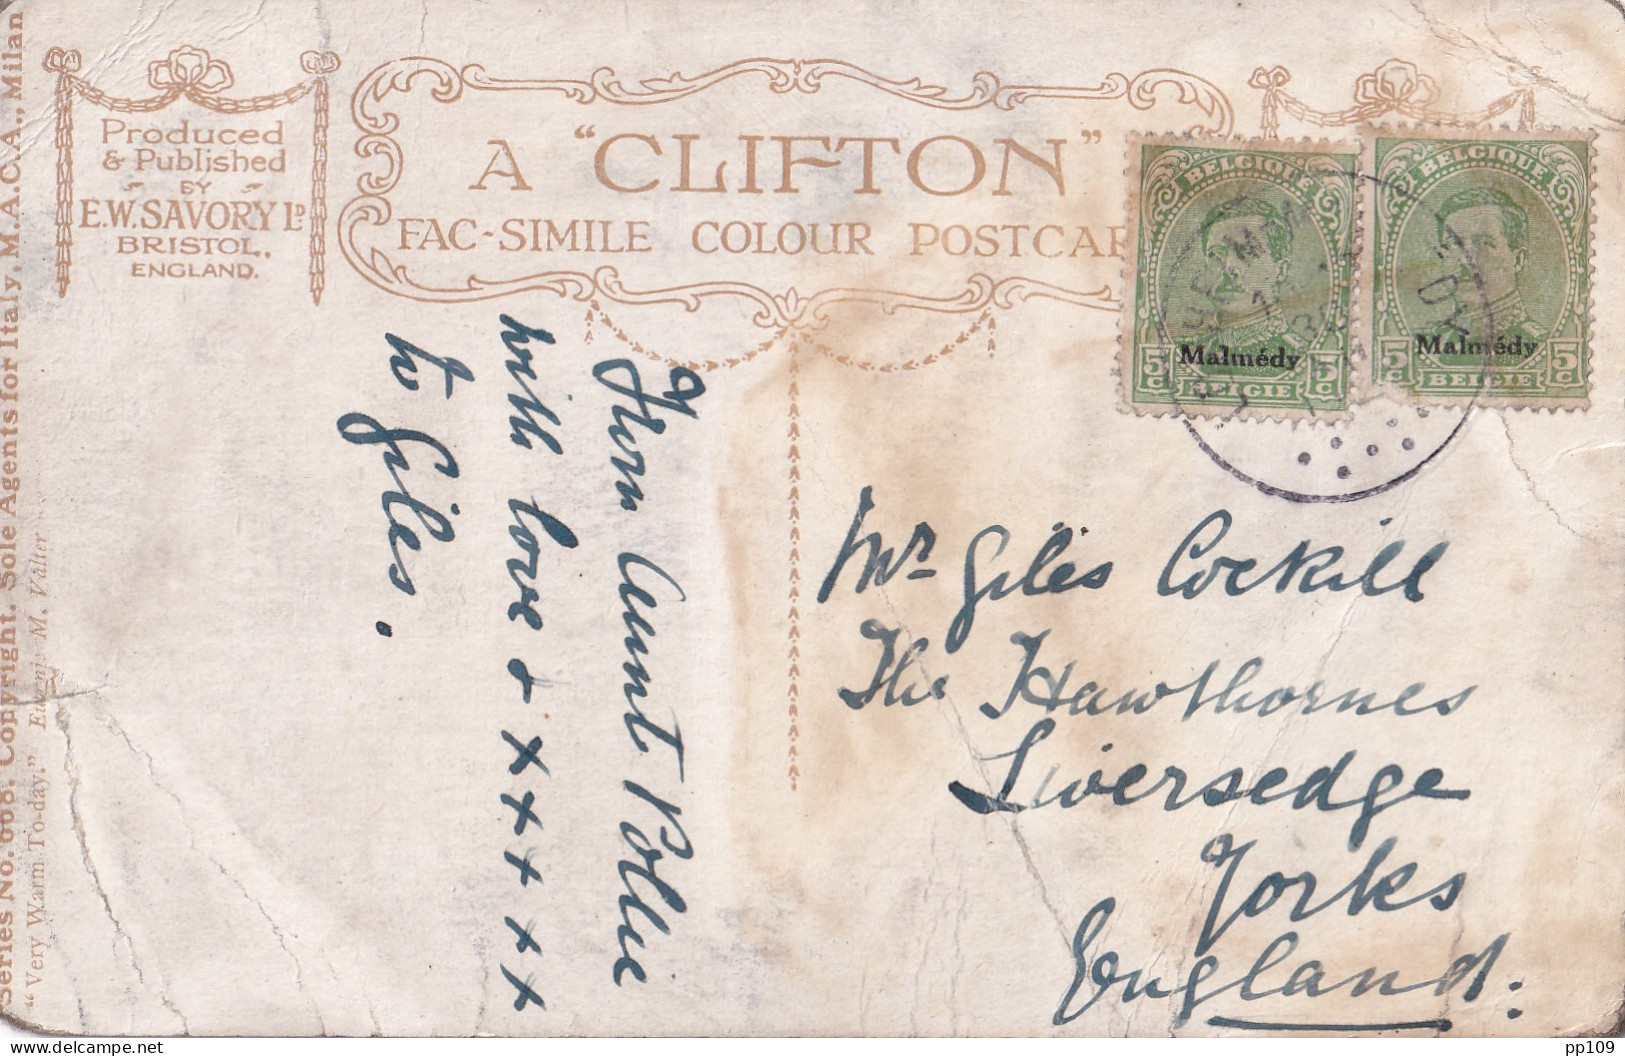 Series No. 668. Copyright. Sole Agents for Italy, M.A.C.A., Milan
"Very Warm To-day." Eugenie M. Valter
Produced
& Published
BY
E.W. SAVORY LD.
BRISTOL,
ENGLAND.
A "CLIFTON"
FAC-SIMILE COLOUR POSTCAR
BELGIQUE
Malmédy
5c 5c
BELGIE
BELGIQUE
Malmédy
5c 5c
BELGIE
From Aunt Pollie
with love & x x x x x x
to Giles.
Mr. Giles Cockill
The Hawthornes
Liversedge
Yorks
England.
©delcampe.net
pp109